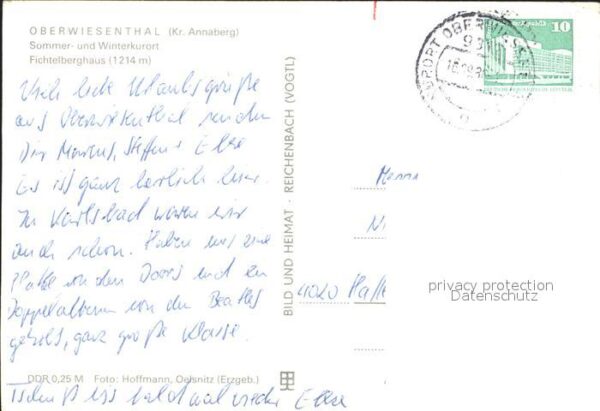 OBERWIESENTHAL (Kr. Annaberg)
Sommer- und Winterkurort
Fichtelberghaus (1214 m)
Viele liebe Urlaubsgrüße
aus Oberwiesenthal senden
Dir Marcus, Steffen + Elke
Es ist ganz herrlich hier.
In Karlsbad waren wir
auch schon. Haben uns eine
Platte von den Doors und ein
Doppelalbum von den Beatles
geholt, ganz große Klasse.
DDR 0,25 M Foto: Hoffmann, Oelsnitz (Erzgeb.)
Tschüß bis bald mal wieder Elke
BILD UND HEIMAT · REICHENBACH (VOGTL)
KURORT OBERWIESENTHAL
10
Herrn
4020 Halle
privacy protection
Datenschutz